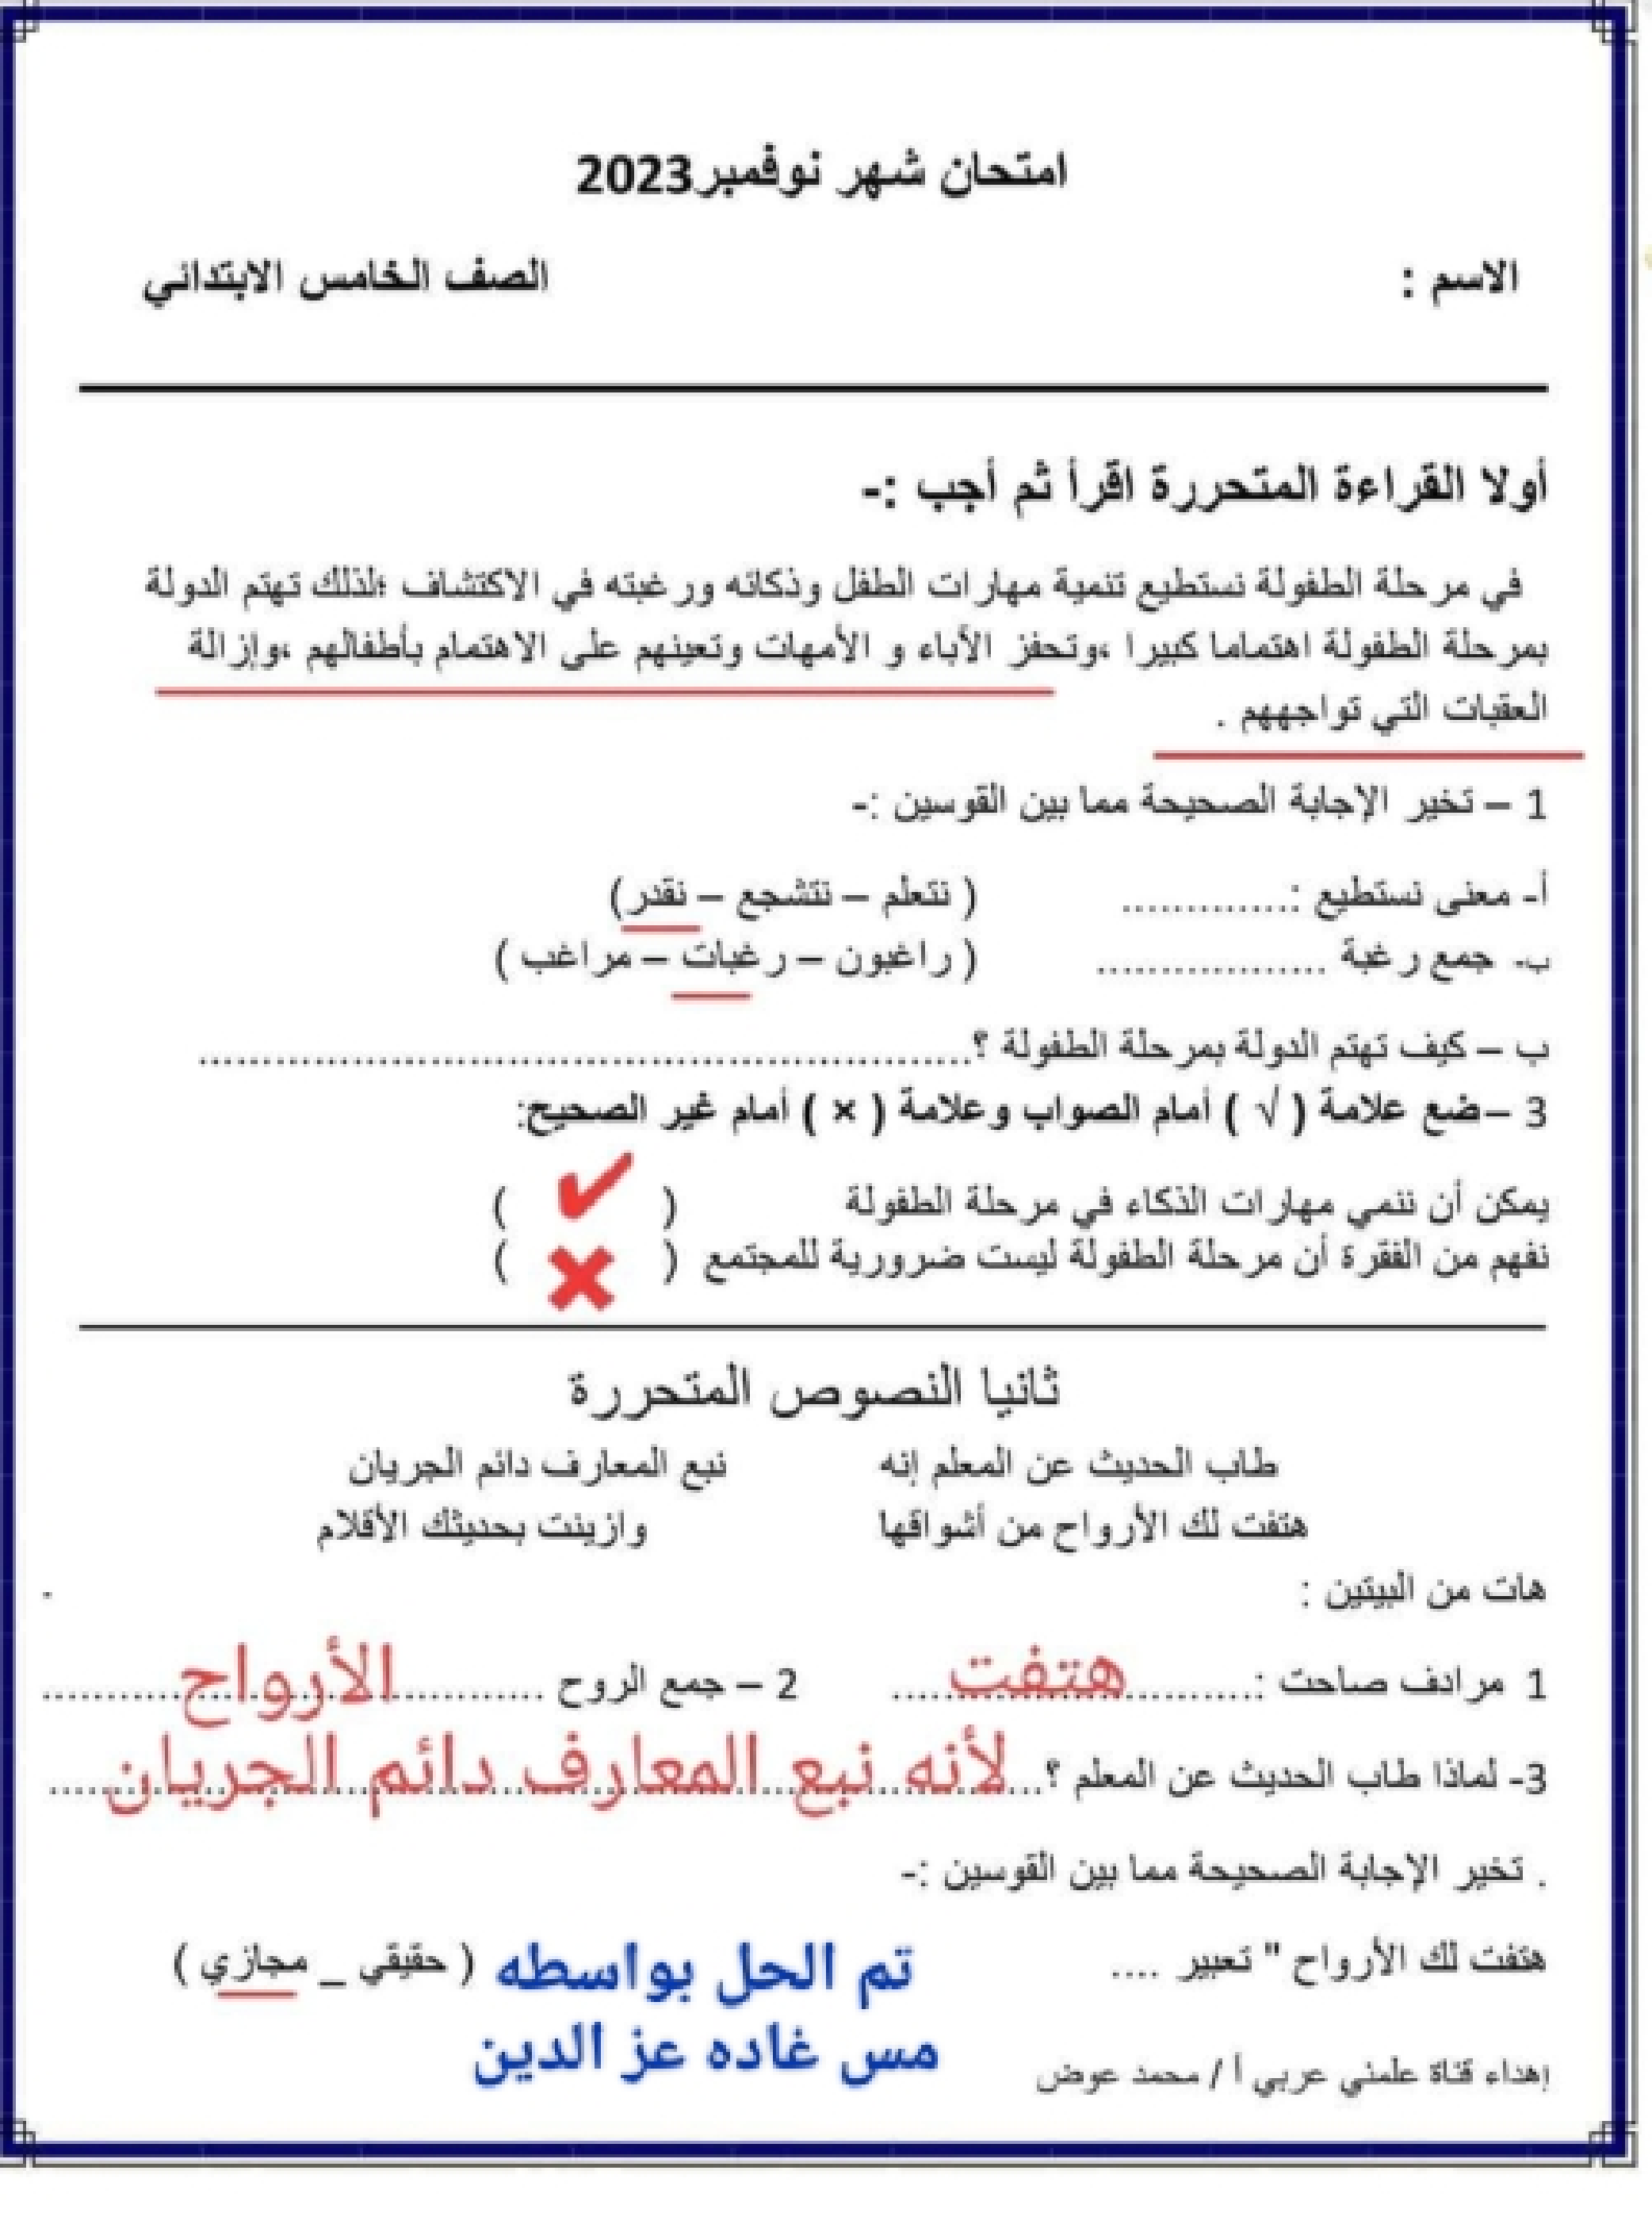 امتحان شهر نوفمبر2023
الاسم : الصف الخامس الابتدائي
أولا القراءة المتحررة اقرأ ثم أجب :-
في مرحلة الطفولة نستطيع تنمية مهارات الطفل وذكائه ورغبته في الاكتشاف ؛لذلك تهتم الدولة
بمرحلة الطفولة اهتماما كبيرا ،وتحفز الأباء و الأمهات وتعينهم على الاهتمام بأطفالهم ،وإزالة
العقبات التي تواجههم .
1 – تخير الإجابة الصحيحة مما بين القوسين :-
أ- معنى نستطيع :............. ( نتعلم – نتشجع – نقدر)
ب- جمع رغبة .................. ( راغبون – رغبات – مراغب )
ب – كيف تهتم الدولة بمرحلة الطفولة ؟.............................................................
3 –ضع علامة ( √ ) أمام الصواب وعلامة ( × ) أمام غير الصحيح:
يمكن أن ننمي مهارات الذكاء في مرحلة الطفولة ( ✔ )
نفهم من الفقرة أن مرحلة الطفولة ليست ضرورية للمجتمع ( ✖ )
ثانيا النصوص المتحررة
طاب الحديث عن المعلم إنه نبع المعارف دائم الجريان
هتفت لك الأرواح من أشواقها وازينت بحديثك الأقلام
هات من البيتين : .
1 مرادف صاحت : هتفت 2 – جمع الروح الأرواح
3- لماذا طاب الحديث عن المعلم ؟ لأنه نبع المعارف دائم الجريان
. تخير الإجابة الصحيحة مما بين القوسين :-
هتفت لك الأرواح " تعبير .... ( حقيقي _ مجازي )
تم الحل بواسطه
مس غاده عز الدين
إهداء قناة علمني عربي أ / محمد عوض